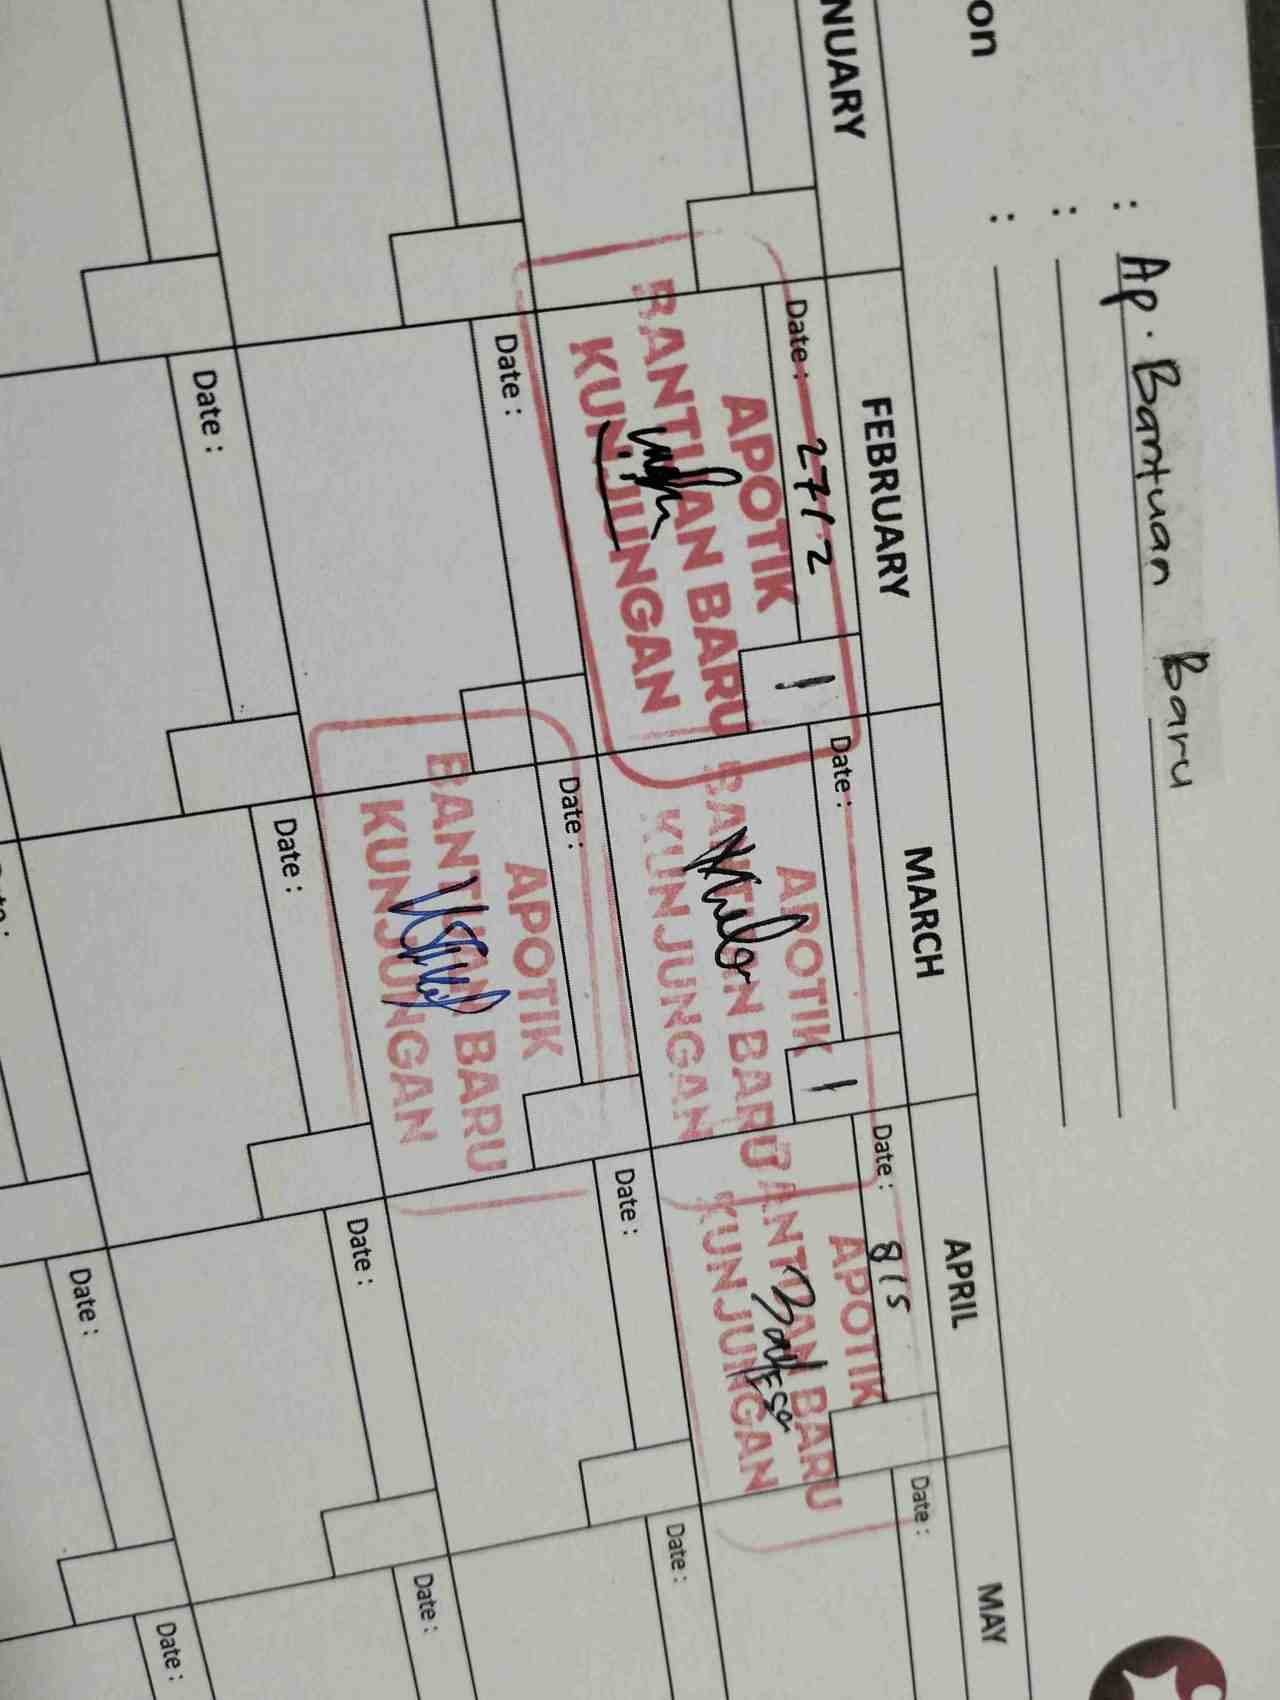 on
: Ap. Bantuan Baru
:
:
NUARY
FEBRUARY
MARCH
APRIL
MAY
Date : 27/2
1
APOTIK
BANTUAN BARU
KUNJUNGAN
Date :
1
APOTIK
BANTUAN BARU
KUNJUNGAN
Date : 8/5
APOTIK
BANTUAN BARU
KUNJUNGAN
Date :
Date :
Date :
APOTIK
BANTUAN BARU
KUNJUNGAN
Date :
Date :
Date :
Date :
Date :
Date :
Date :
Date :